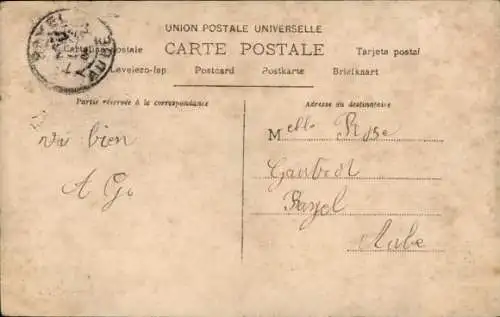 UNION POSTALE UNIVERSELLE
Cartolina postale CARTE POSTALE Tarjeta postal
Levelezo-lap Postcard Postkarte Briefkaart
Partie réservée à la correspondance
Adresse du destinataire
BAYEL AUBE
Melle Rose
va bien
A G
Bayel
Aube